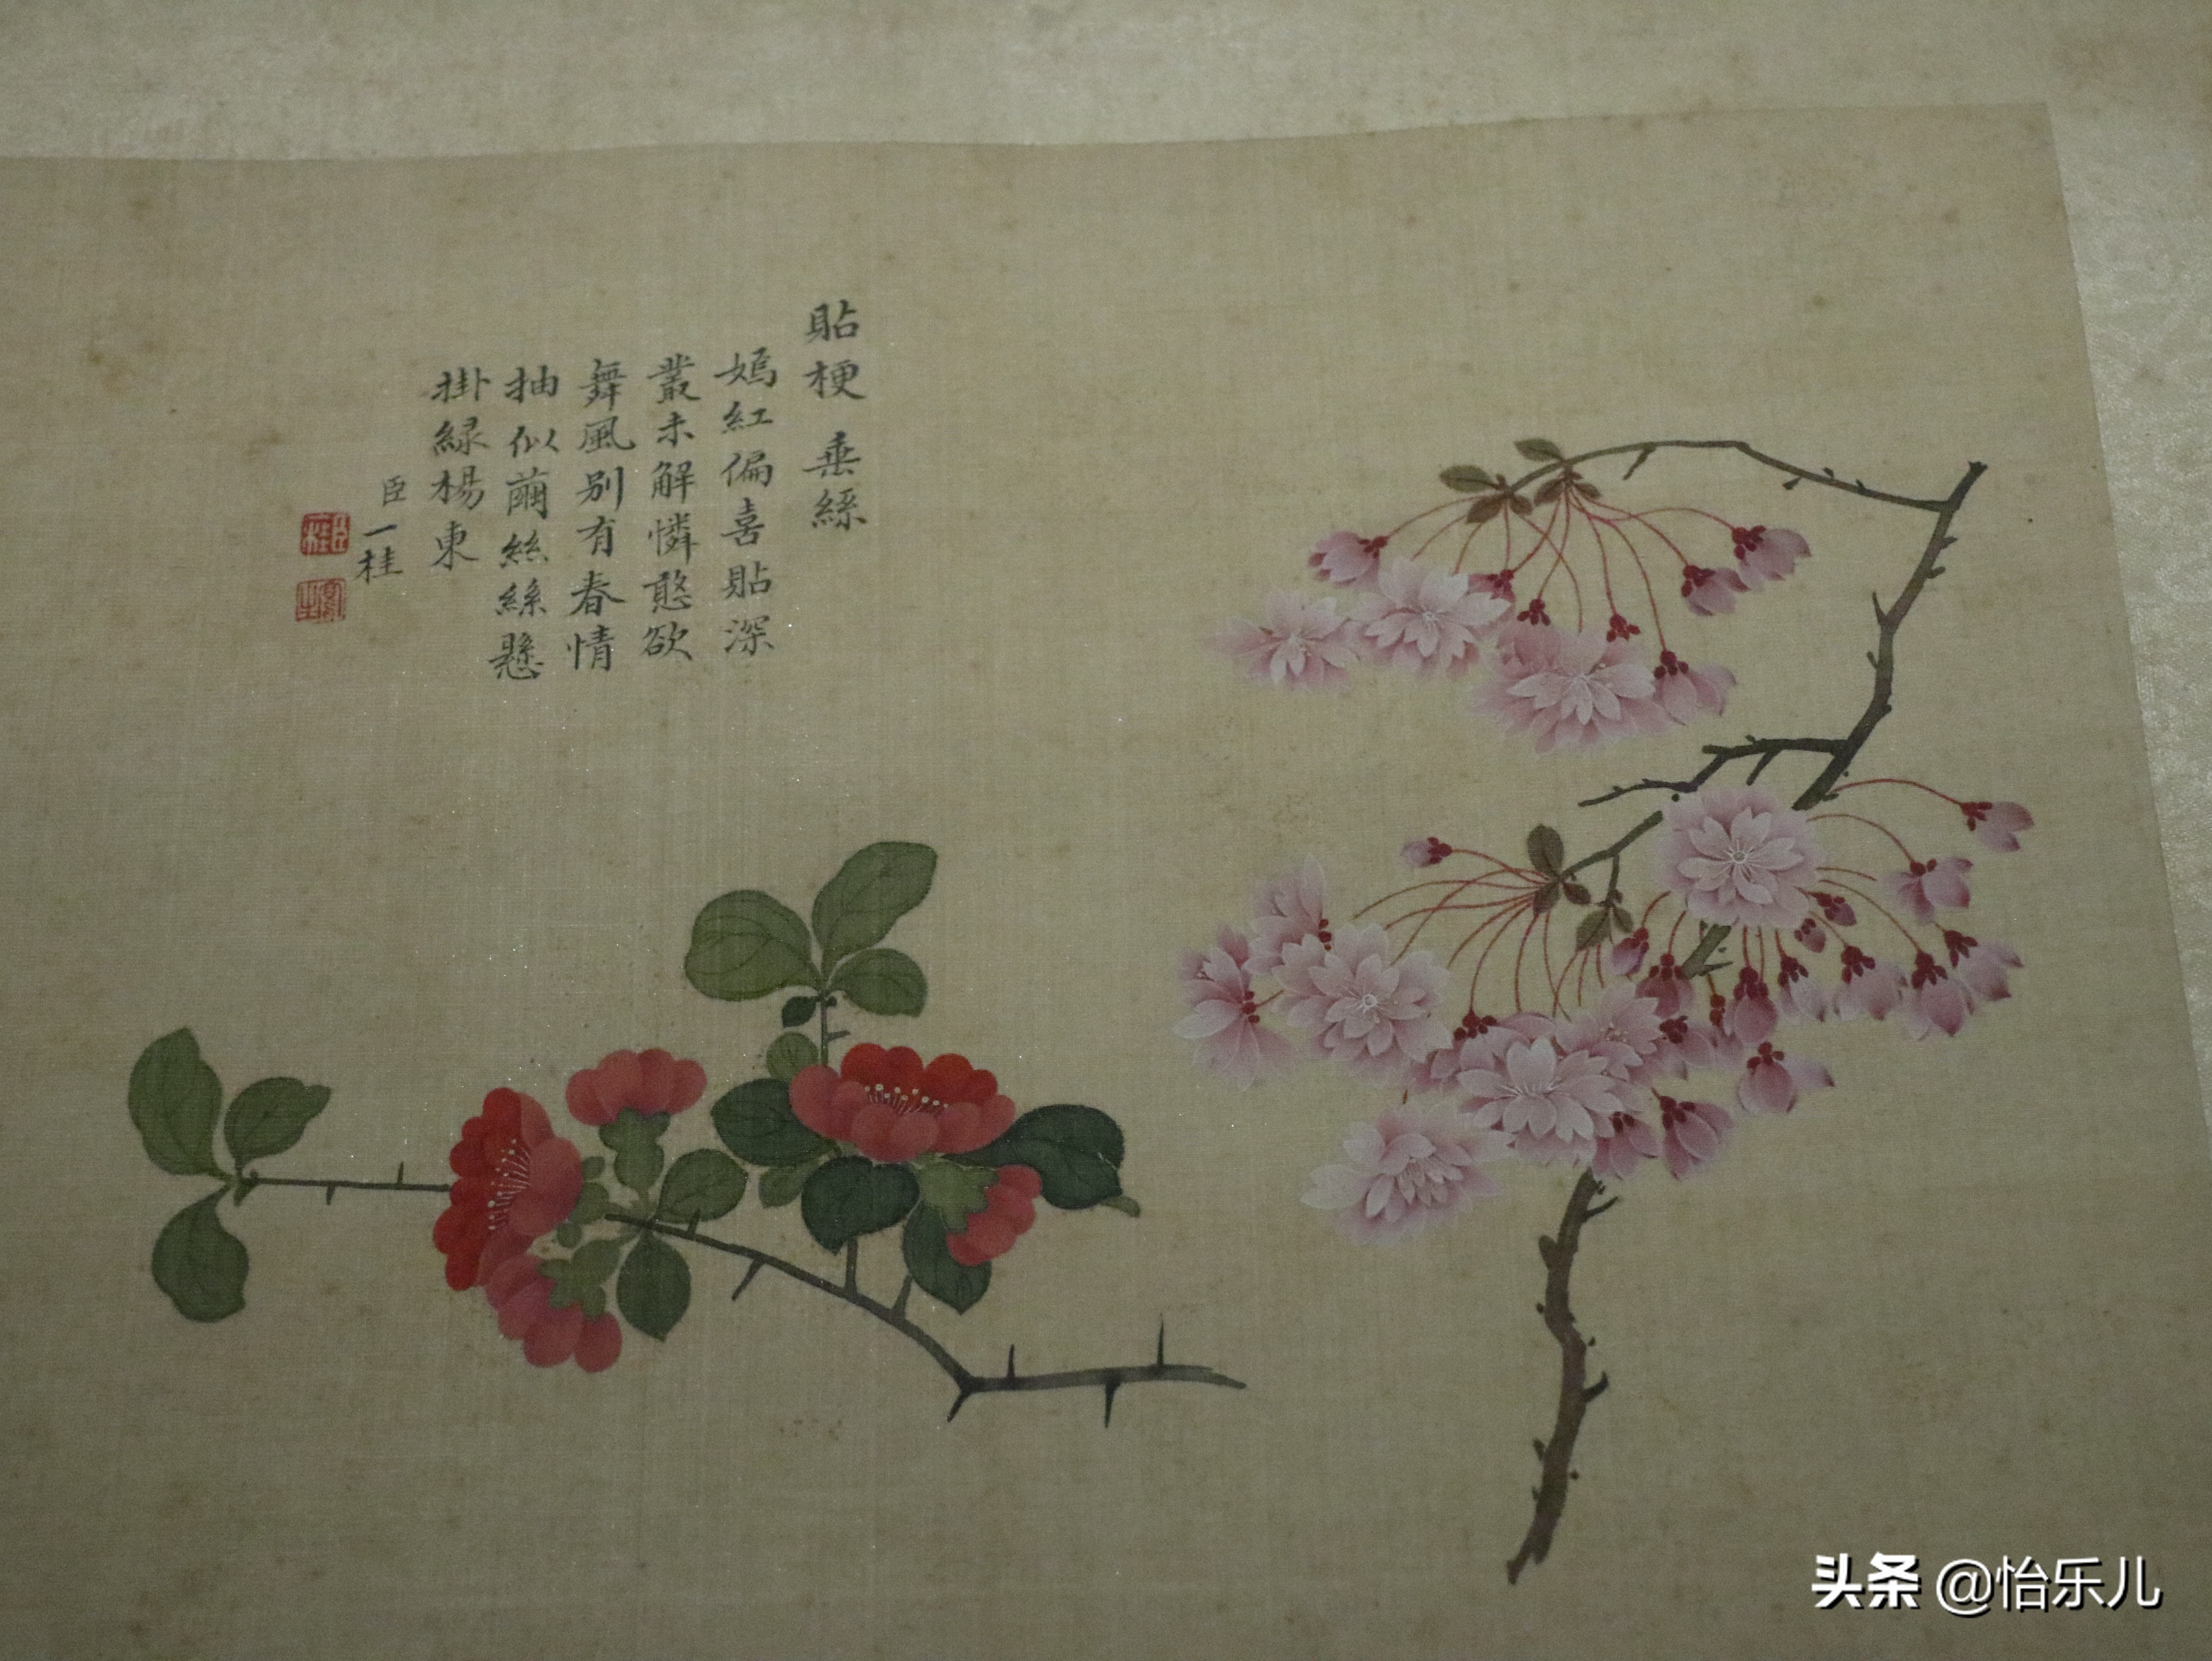 貼梗 垂絲
嫣紅偏喜貼深
叢未解憐憨欲
舞風别有春情
抽似繭絲絲懸
掛緑楊東
臣一桂
臣一桂
头条 @怡乐儿